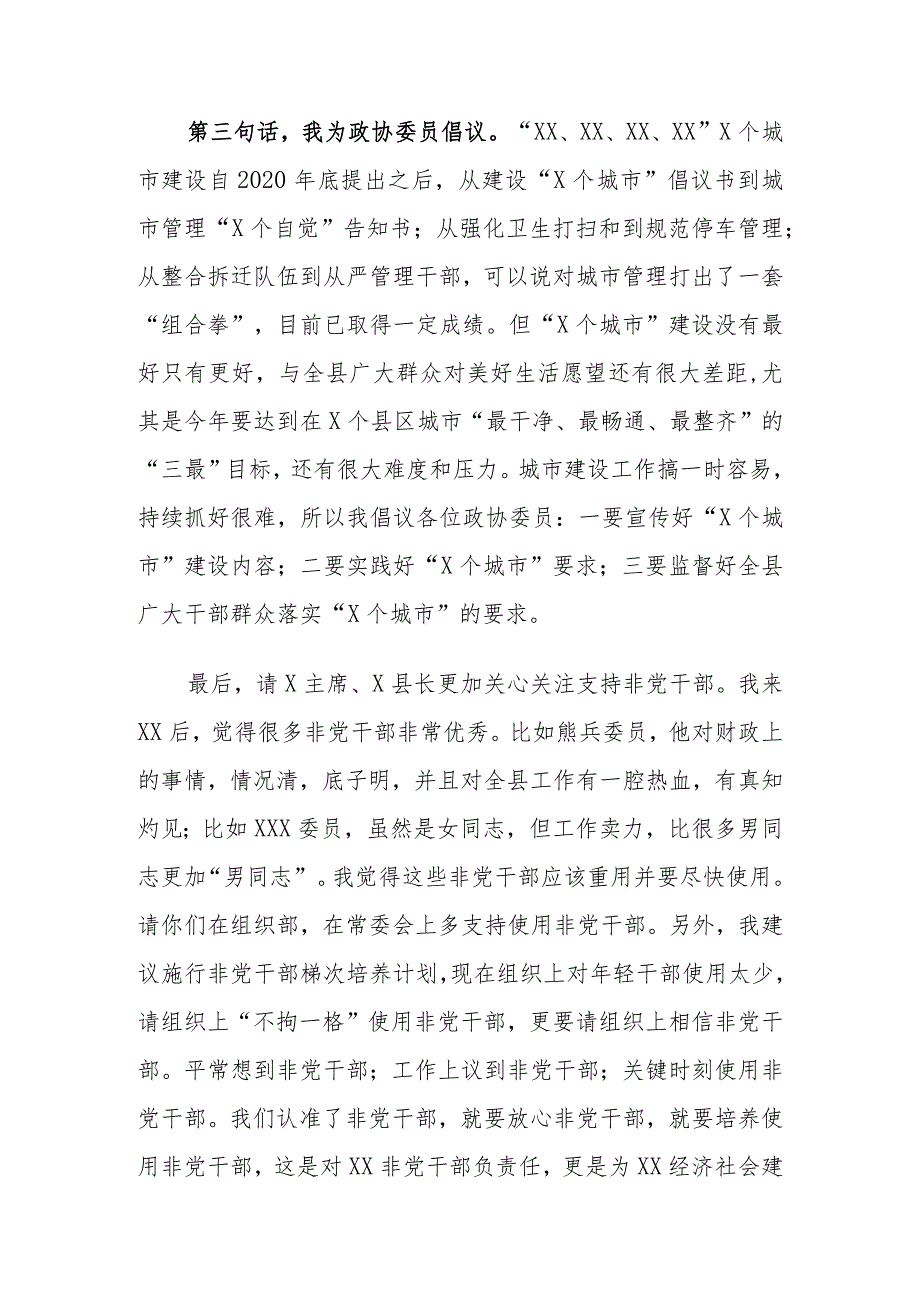 第三句话，我为政协委员倡议。“XX、XX、XX、XX”X 个城
市建设自 2020 年底提出之后，从建设“X 个城市”倡议书到城
市管理“X 个自觉”告知书；从强化卫生打扫和到规范停车管理；
从整合拆迁队伍到从严管理干部，可以说对城市管理打出了一套
“组合拳”，目前已取得一定成绩。但“X 个城市”建设没有最
好只有更好，与全县广大群众对美好生活愿望还有很大差距,尤
其是今年要达到在 X 个县区城市“最干净、最畅通、最整齐”的
“三最”目标，还有很大难度和压力。城市建设工作搞一时容易，
持续抓好很难，所以我倡议各位政协委员：一要宣传好“X 个城
市”建设内容；二要实践好“X 个城市”要求；三要监督好全县
广大干部群众落实“X 个城市”的要求。
最后，请 X 主席、X 县长更加关心关注支持非党干部。我来
XX 后，觉得很多非党干部非常优秀。比如熊兵委员，他对财政上
的事情，情况清，底子明，并且对全县工作有一腔热血，有真知
灼见；比如 XXX 委员，虽然是女同志，但工作卖力，比很多男同
志更加“男同志”。我觉得这些非党干部应该重用并要尽快使用。
请你们在组织部，在常委会上多支持使用非党干部。另外，我建
议施行非党干部梯次培养计划,现在组织上对年轻干部使用太少，
请组织上“不拘一格”使用非党干部，更要请组织上相信非党干
部。平常想到非党干部；工作上议到非党干部；关键时刻使用非
党干部。我们认准了非党干部，就要放心非党干部，就要培养使
用非党干部，这是对 XX 非党干部负责任，更是为 XX 经济社会建